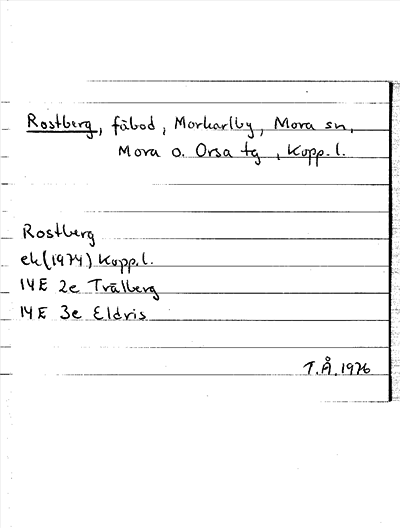 Rostberg, fäbod, Morkarlby, Mora sn,
Mora o. Orsa tg, Kopp. l.
Rostberg
ek (1974) Kopp. l.
14E 2e Trälberg
14E 3e Eldris
T.Å. 1976